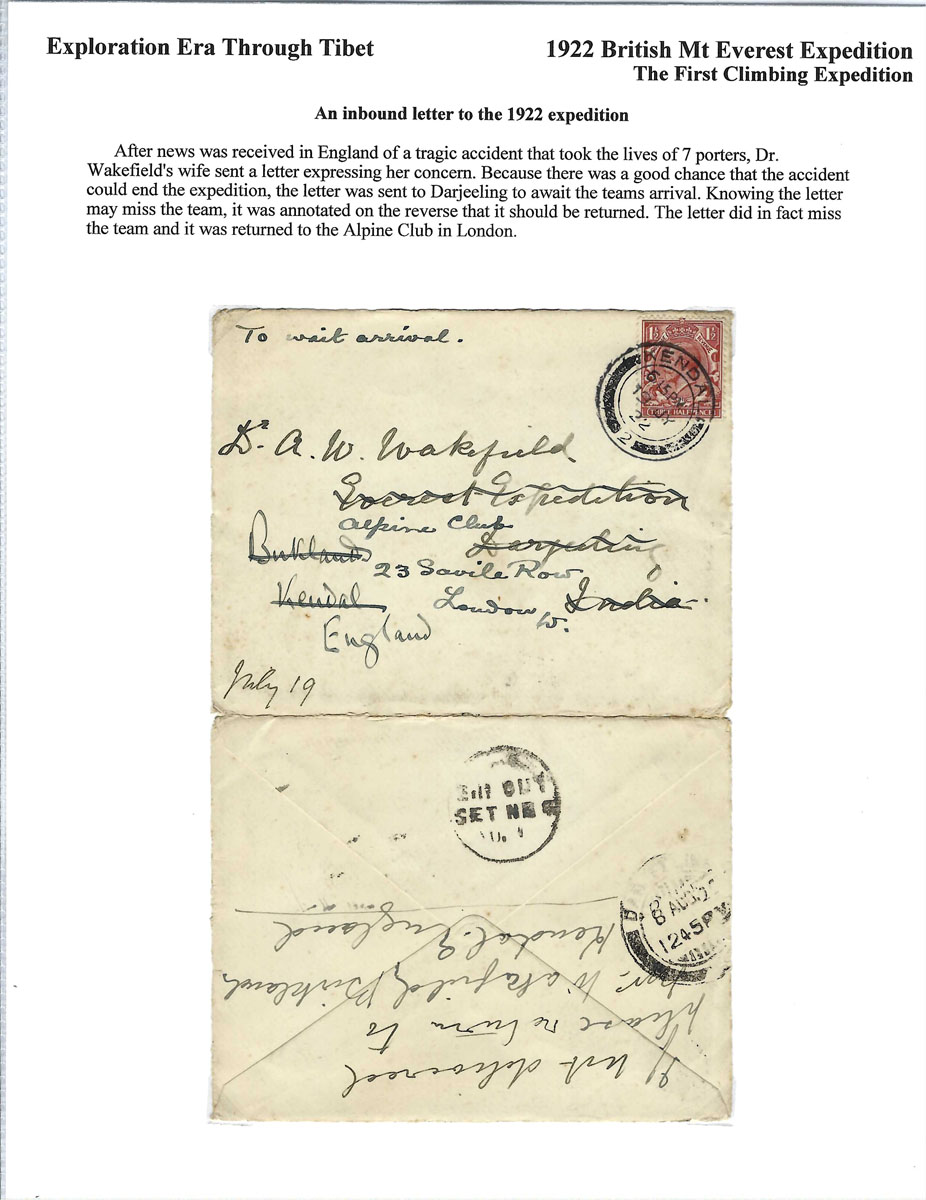 Exploration Era Through Tibet
1922 British Mt Everest Expedition
The First Climbing Expedition
An inbound letter to the 1922 expedition
After news was received in England of a tragic accident that took the lives of 7 porters, Dr.
Wakefield's wife sent a letter expressing her concern. Because there was a good chance that the accident
could end the expedition, the letter was sent to Darjeeling to await the teams arrival. Knowing the letter
may miss the team, it was annotated on the reverse that it should be returned. The letter did in fact miss
the team and it was returned to the Alpine Club in London.
To wait arrival.
1½ 1½
KENDAL
6 15 PM
22
2
Dr. A. W. Wakefield
Everest Expedition
Alpine Club
Birkland Darjeeling
23 Savile Row
Kendal London W. India.
England
July 19
OUT
SET NO
8 AUG 22
1245PM
If not delivered
please return to
Mrs. Wakefield, Birkland
Kendal. England